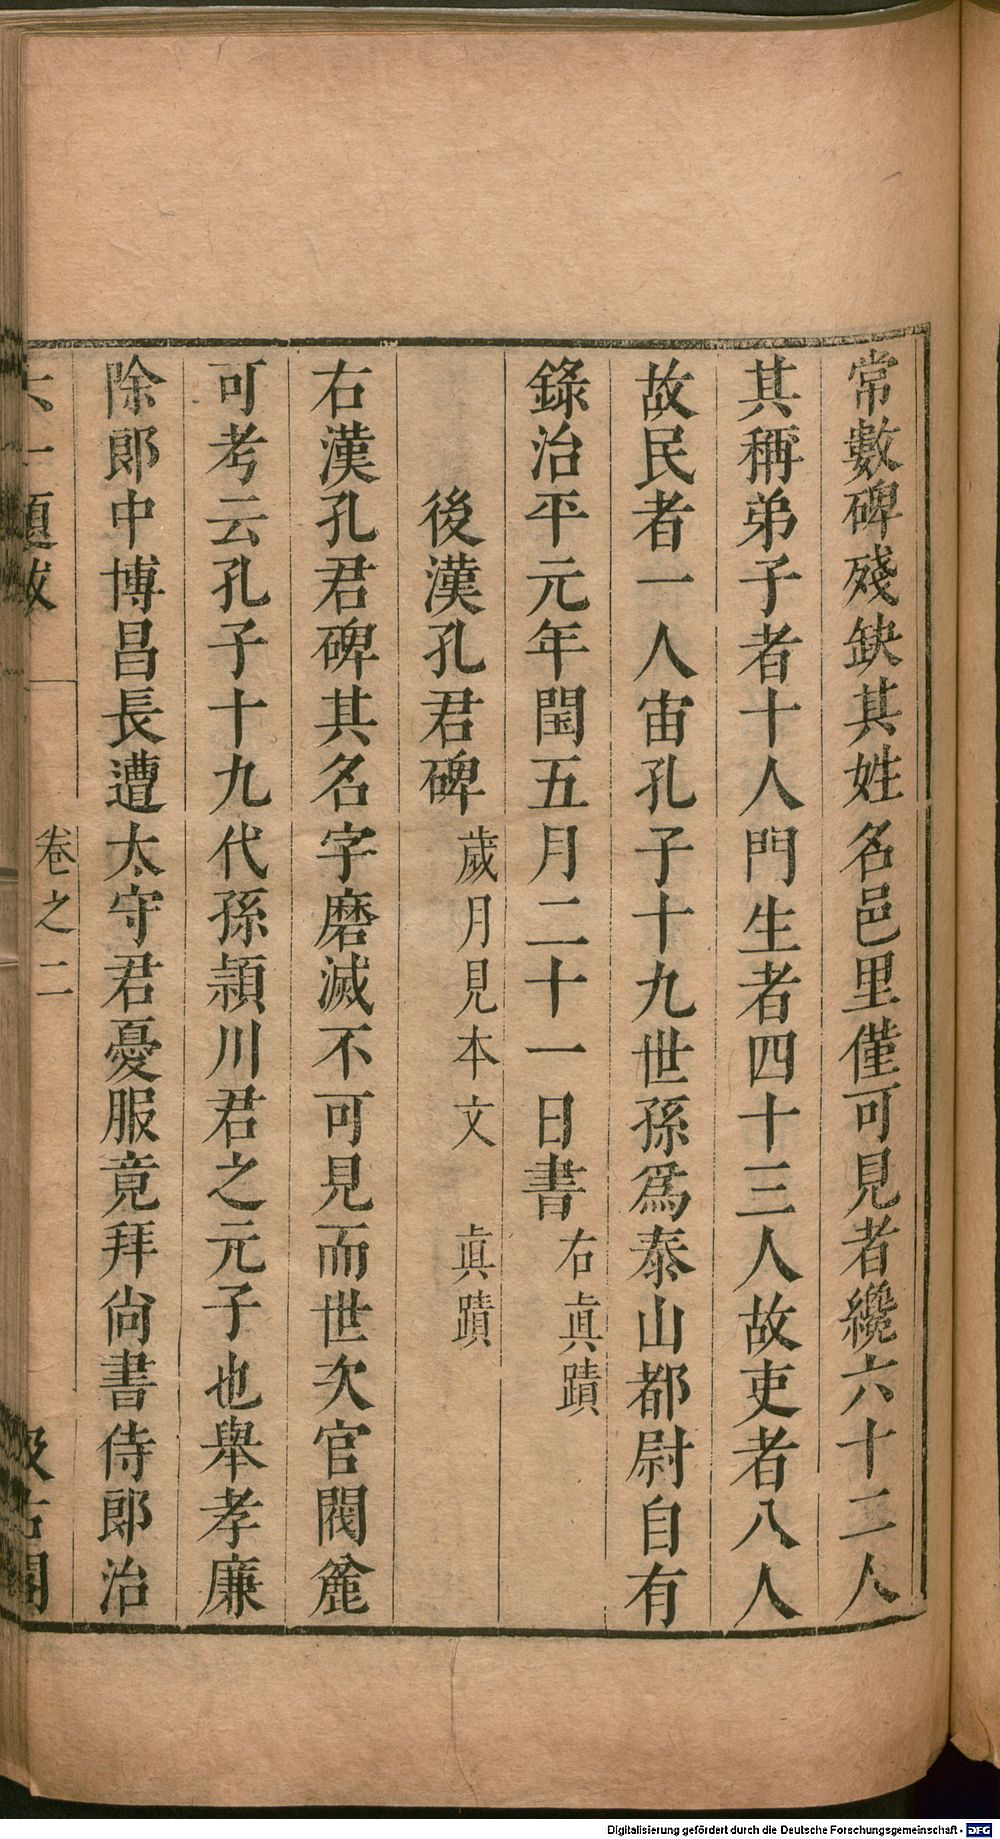 常數碑殘缺其姓名邑里僅可見者纔六十二人
其稱弟子者十人門生者四十三人故吏者八人
故民者一人宙孔子十九世孫爲泰山都尉自有
錄治平元年閏五月二十一日書 右眞蹟
後漢孔君碑 歲月見本文 眞蹟
右漢孔君碑其名字磨滅不可見而世次官閥麄
可考云孔子十九代孫潁川君之元子也舉孝廉
除郎中博昌長遭太守君憂服竟拜尚書侍郎治
六一題跋 卷之二 汲古閣
Digitalisierung gefördert durch die Deutsche Forschungsgemeinschaft - DFG